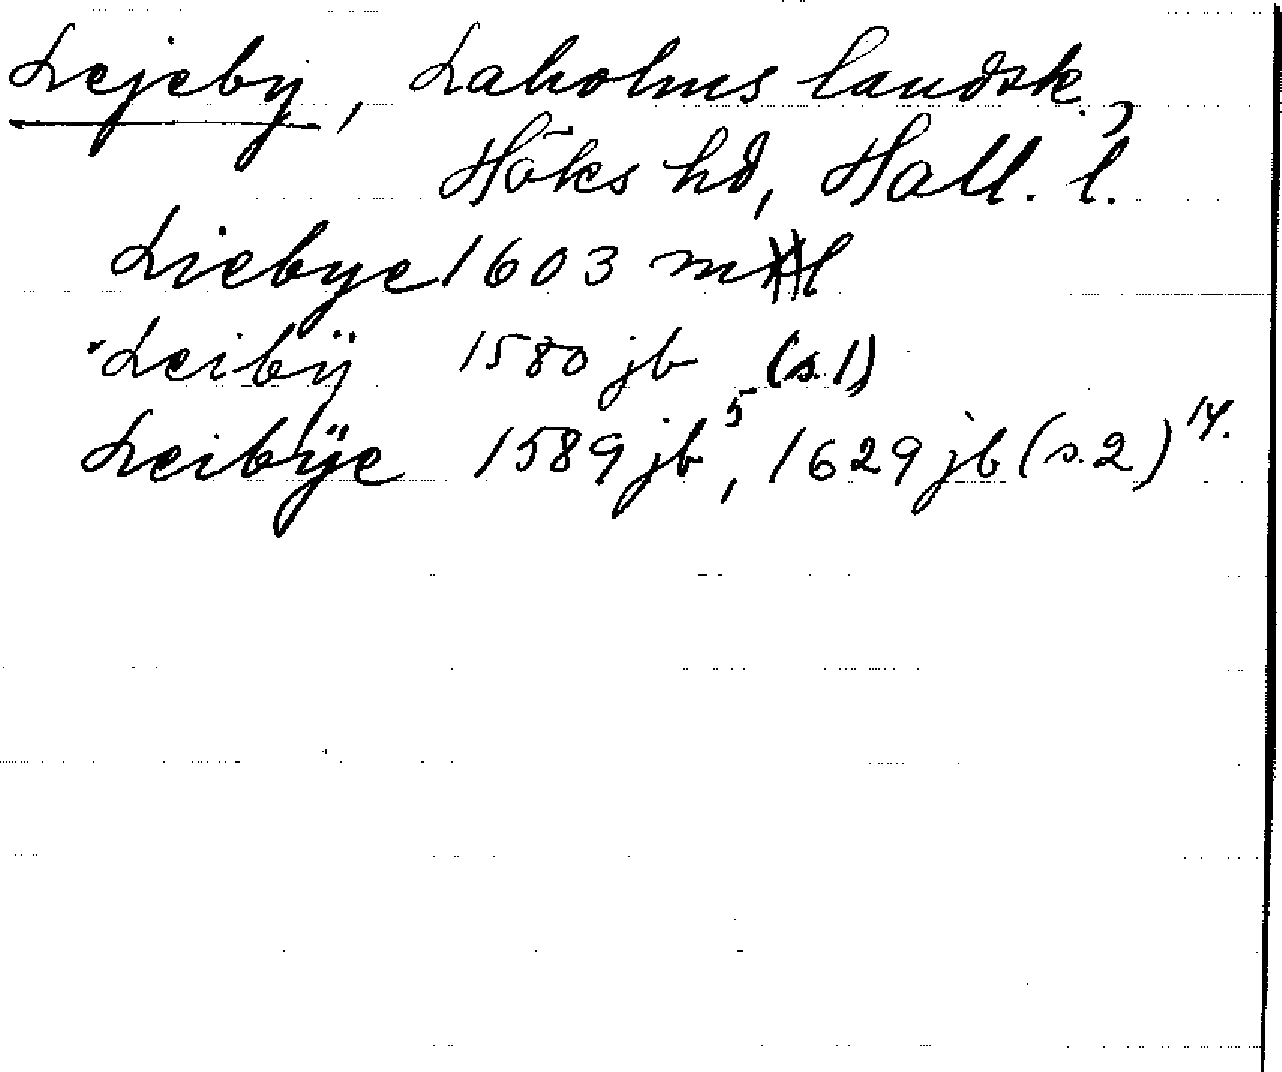 Lejeby, Laholms landsk.,
Höks hd, Hall. l.
Liebye 1603 ml
Leibÿ 1580 jb (s.1)
Leibÿe 1589 jb⁵, 1629 jb (s.2)¹⁴.